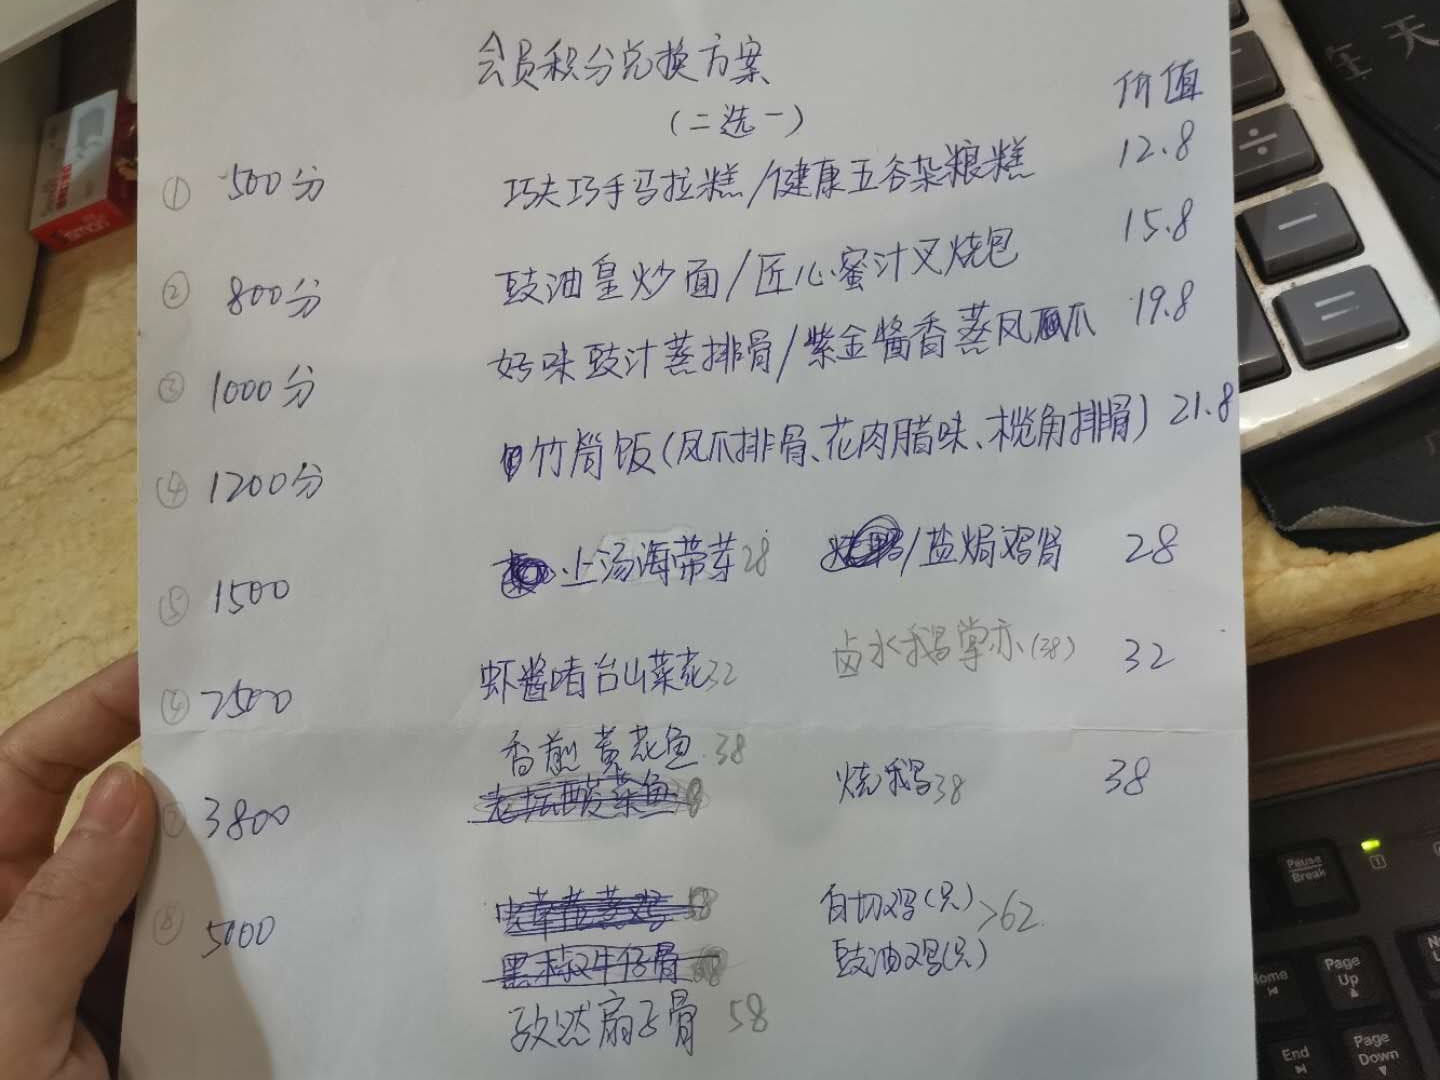 会员积分兑换方案
(二选一)
价值
① 500分 巧夫巧手马拉糕/健康五谷杂粮糕 12.8
② 800分 豉油皇炒面/匠心蜜汁叉烧包 15.8
③ 1000分 好味豉汁蒸排骨/紫金酱香蒸凤爪 19.8
④ 1200分 竹筒饭(凤爪排骨、花肉腊味、榄角排骨) 21.8
⑤ 1500 上汤海带芽28 /盐焗鸡肾 28
⑥ 2500 虾酱啫台山菜花32 卤水鹅掌亦(38) 32
香煎黄花鱼 38
⑦ 3800 老坛酸菜鱼 烧鹅38 38
⑧ 5000 虫草花蒸鸡 58 白切鸡(只) >62
黑椒牛仔骨 豉油鸡(只)
孜然扇子骨 58
÷
−
=
在 天
Pause
Break
1
Home
Page
Up
End
Page
Down